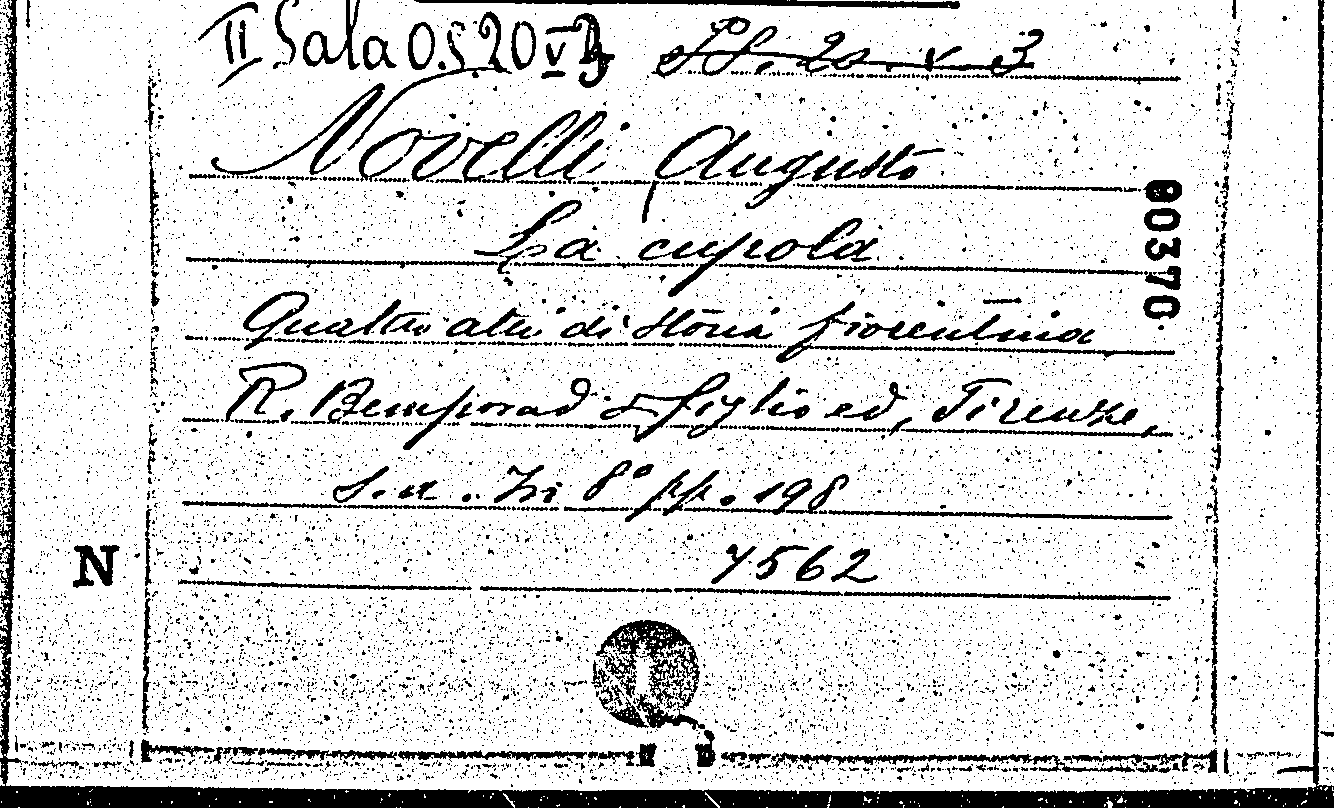 II Sala O.S. 20 V 3 SS. 20. V 3
Novelli Augusto
La cupola
Quattro atti di storia fiorentina
R. Bemporad & figlio ed, Firenze,
S. a. In 8° pp. 198
N
7562
00370